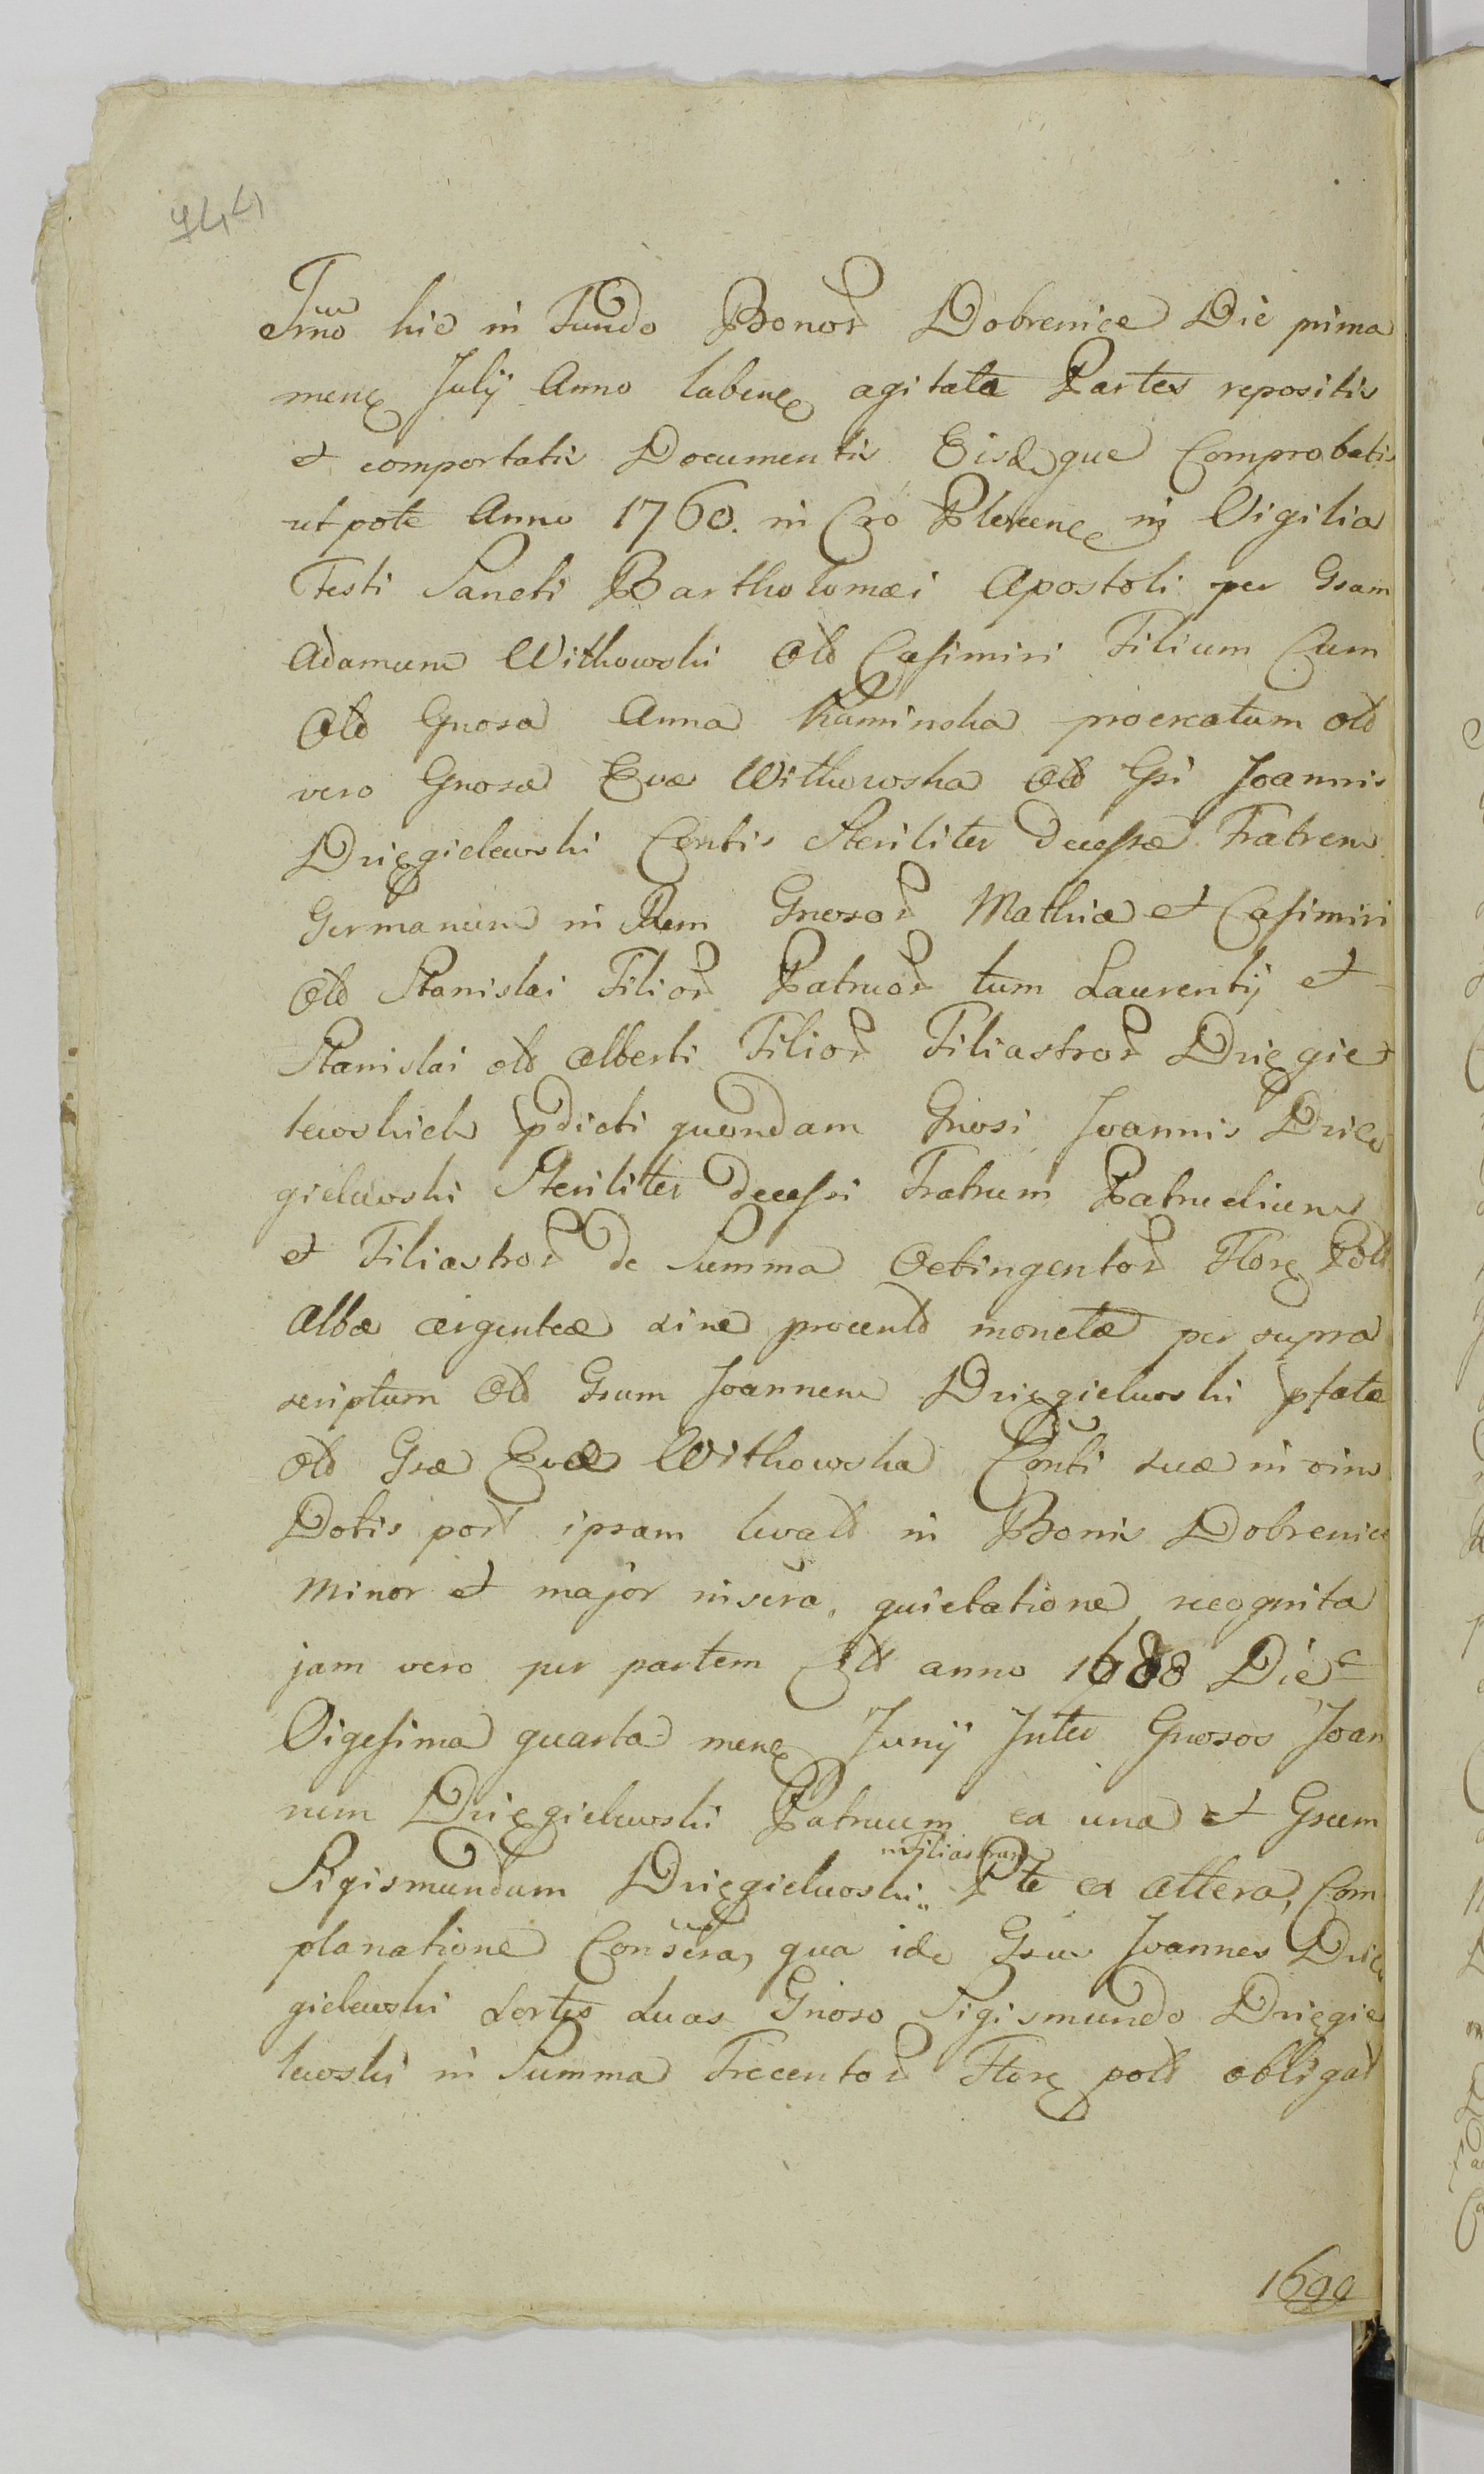 744
Tmo hic in Fundo Bonor Dobrenice Die prima
mens Julij Anno labens agitata Partes repositis
et comportatis Documentis Eisdque Comprobatis
utpote Anno 1760. in Cro Plocens in Vigilia
Festi Sancti Bartholomæi Apostoli per Gsam
Adamum Witkowski Old Casimiri Filium Cum
Old Gnosa Anna Kaminska procreatum old
vero Gnosæ Evæ Witkowska Old Gsi Joannis
Dzięgielewski Contis Steriliter decessæ Fratrem
Germanum in Rem Gnosor Mathiæ et Casimiri
Old Stanislai Filior Patruor tum Laurentij et
Stanislai old Alberti Filior Filiastror Dzięgie
lewskich pdicti quondam Gnosi Joannis Dzię
gielewski Steriliter decessi Fratrum Patruelium
et Filiastror de Summa Octingentor Flor Poll
Albæ argenteæ sine procentd monetæ per supra
scriptum Old Gsum Joannem Dzięgielewski pfatæ
Old Gsæ Evæ Witkowska Conti suæ in vim
Dotis post ipsam levatd in Bonis Dobrenice
Minor et major inscra, quietatione recognita
jam vero per partem Citt anno 1688 Die
Vigesima quarta mens Junij Inter Gnosos Joan
nem Dzięgielewski Patruum ex una et Gsum
Sigismundum Dzięgielewski „Filiastrum Pte ex altera, Com
planatione Conscra, qua ide Gsus Joannes Dzię
gielewski sortes duas Gnoso Sigismundo Dzięgie
lewski in Summa Trecentor Flor pold obligat
1699